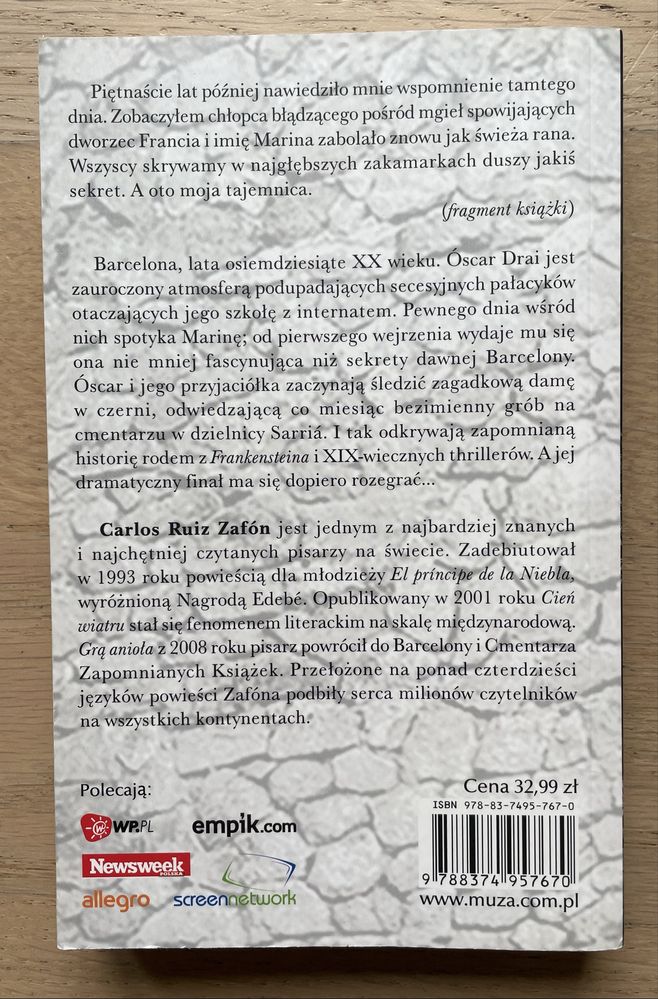 Piętnaście lat później nawiedziło mnie wspomnienie tamtego
dnia. Zobaczyłem chłopca błądzącego pośród mgieł spowijających
dworzec Francia i imię Marina zabolało znowu jak świeża rana.
Wszyscy skrywamy w najgłębszych zakamarkach duszy jakiś
sekret. A oto moja tajemnica.
(fragment książki)
Barcelona, lata osiemdziesiąte XX wieku. Óscar Drai jest
zauroczony atmosferą podupadających secesyjnych pałacyków
otaczających jego szkołę z internatem. Pewnego dnia wśród
nich spotyka Marinę; od pierwszego wejrzenia wydaje mu się
ona nie mniej fascynująca niż sekrety dawnej Barcelony.
Óscar i jego przyjaciółka zaczynają śledzić zagadkową damę
w czerni, odwiedzającą co miesiąc bezimienny grób na
cmentarzu w dzielnicy Sarriá. I tak odkrywają zapomnianą
historię rodem z Frankensteina i XIX-wiecznych thrillerów. A jej
dramatyczny finał ma się dopiero rozegrać...
Carlos Ruiz Zafón jest jednym z najbardziej znanych
i najchętniej czytanych pisarzy na świecie. Zadebiutował
w 1993 roku powieścią dla młodzieży El príncipe de la Niebla,
wyróżnioną Nagrodą Edebé. Opublikowany w 2001 roku Cień
wiatru stał się fenomenem literackim na skalę międzynarodową.
Grą anioła z 2008 roku pisarz powrócił do Barcelony i Cmentarza
Zapomnianych Książek. Przełożone na ponad czterdzieści
języków powieści Zafóna podbiły serca milionów czytelników
na wszystkich kontynentach.
Polecają:
WP.PL
empik.com
Newsweek
POLSKA
allegro
screennetwork
Cena 32,99 zł
ISBN 978-83-7495-767-0
9 788374 957670
www.muza.com.pl